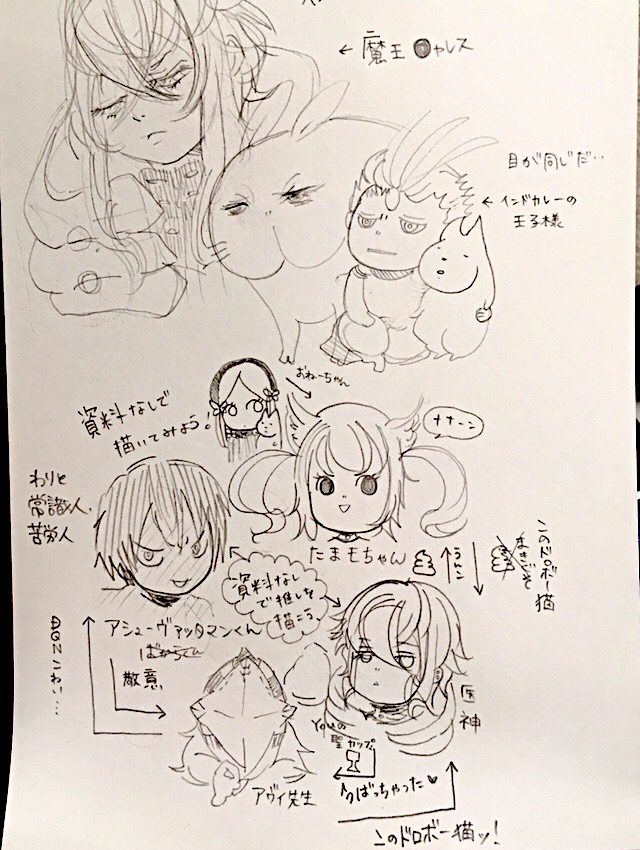 ← 魔王●ャレス
目が同じだ‥
← インドカレーの
王子様
おねーちゃん
資料なしで
描いてみよう!
ナナーン
わりと
常識人、
苦労人
たまもちゃん
うんこ
このドロボー猫
資料なし
で推しを
描こう
アシューヴァッタマンくん
DQNこわい…
敵意
医神
Youの
聖カップ
ぱっちゃった♥
アヴィ先生
このドロボー猫ッ!